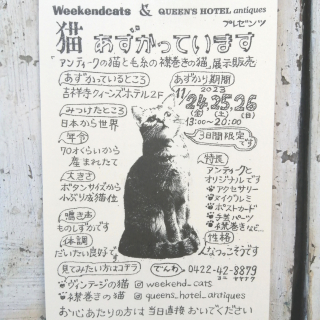 Weekendcats & QUEEN'S HOTEL antiques
プレゼンツ
猫 あずかっています
アンティークの猫と毛糸の襟巻きの猫、展示販売
あずかっているところ
吉祥寺クィーンズホテル2F
あずかり期間
2023
11/24,25,26
(金)(土)(日)
13:00~20:00
3日間限定です
みつけたところ
日本から世界
年令
70才くらいから
産まれたて
大きさ
ボタンサイズから
わぶり成猫位
鳴き声
ものしずかです
体調
だいたい良好です
特長
アンティークと
オリジナルです
アクセサリー
ヌイグルミ
ポストカード
手芸パーツ
襟巻きなど
性格
人なつっこそうです
見てみたい方はコチラ
でんわ 0422-42-8879
ヴィンテージの猫 weekend_cats
襟巻きの猫 queens_hotel_antiques
お心あたりの方は当日直接おいでください